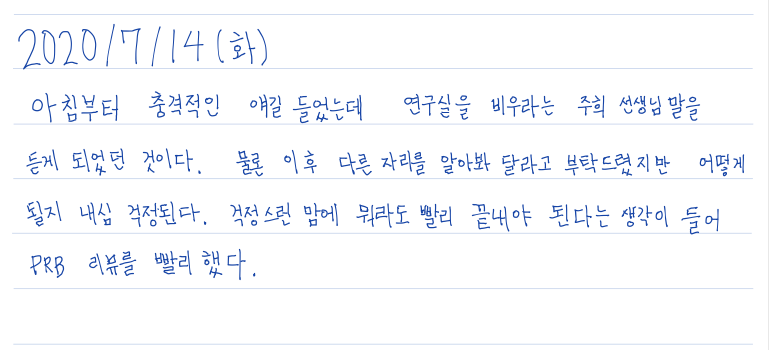 2020/7/14 (화)
아침부터 충격적인 얘길 들었는데 연구실을 비우라는 주희 선생님 말을
듣게 되었던 것이다. 물론 이후 다른 자리를 알아봐 달라고 부탁드렸지만 어떻게
될지 내심 걱정된다. 걱정스런 맘에 뭐라도 빨리 끝내야 된다는 생각이 들어
PRB 리뷰를 빨리 했다.